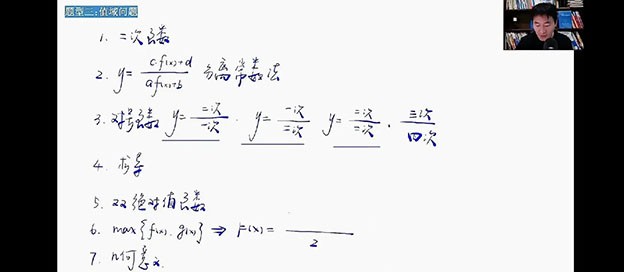 题型二:值域问题
1. 二次函数
2. y = c·f(x)+d / a f(x)+b 分离常数法
3. 对号函数 y = 二次/一次 . y = 一次/二次 y = 二次/二次 . 三次/四次
4. 求导
5. 双绝对值函数
6. max{f(x), g(x)} ⇒ F(x) = / 2
7. 几何意义